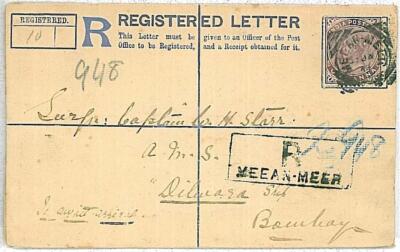 REGISTERED.
101
R
REGISTERED LETTER
This Letter must be given to an Officer of the Post
Office to be Registered, and a Receipt obtained for it.
948
Captain W. H. Starr
948
R
MEEAN-MEER
A. M. S.
"Dilwara"
Bombay